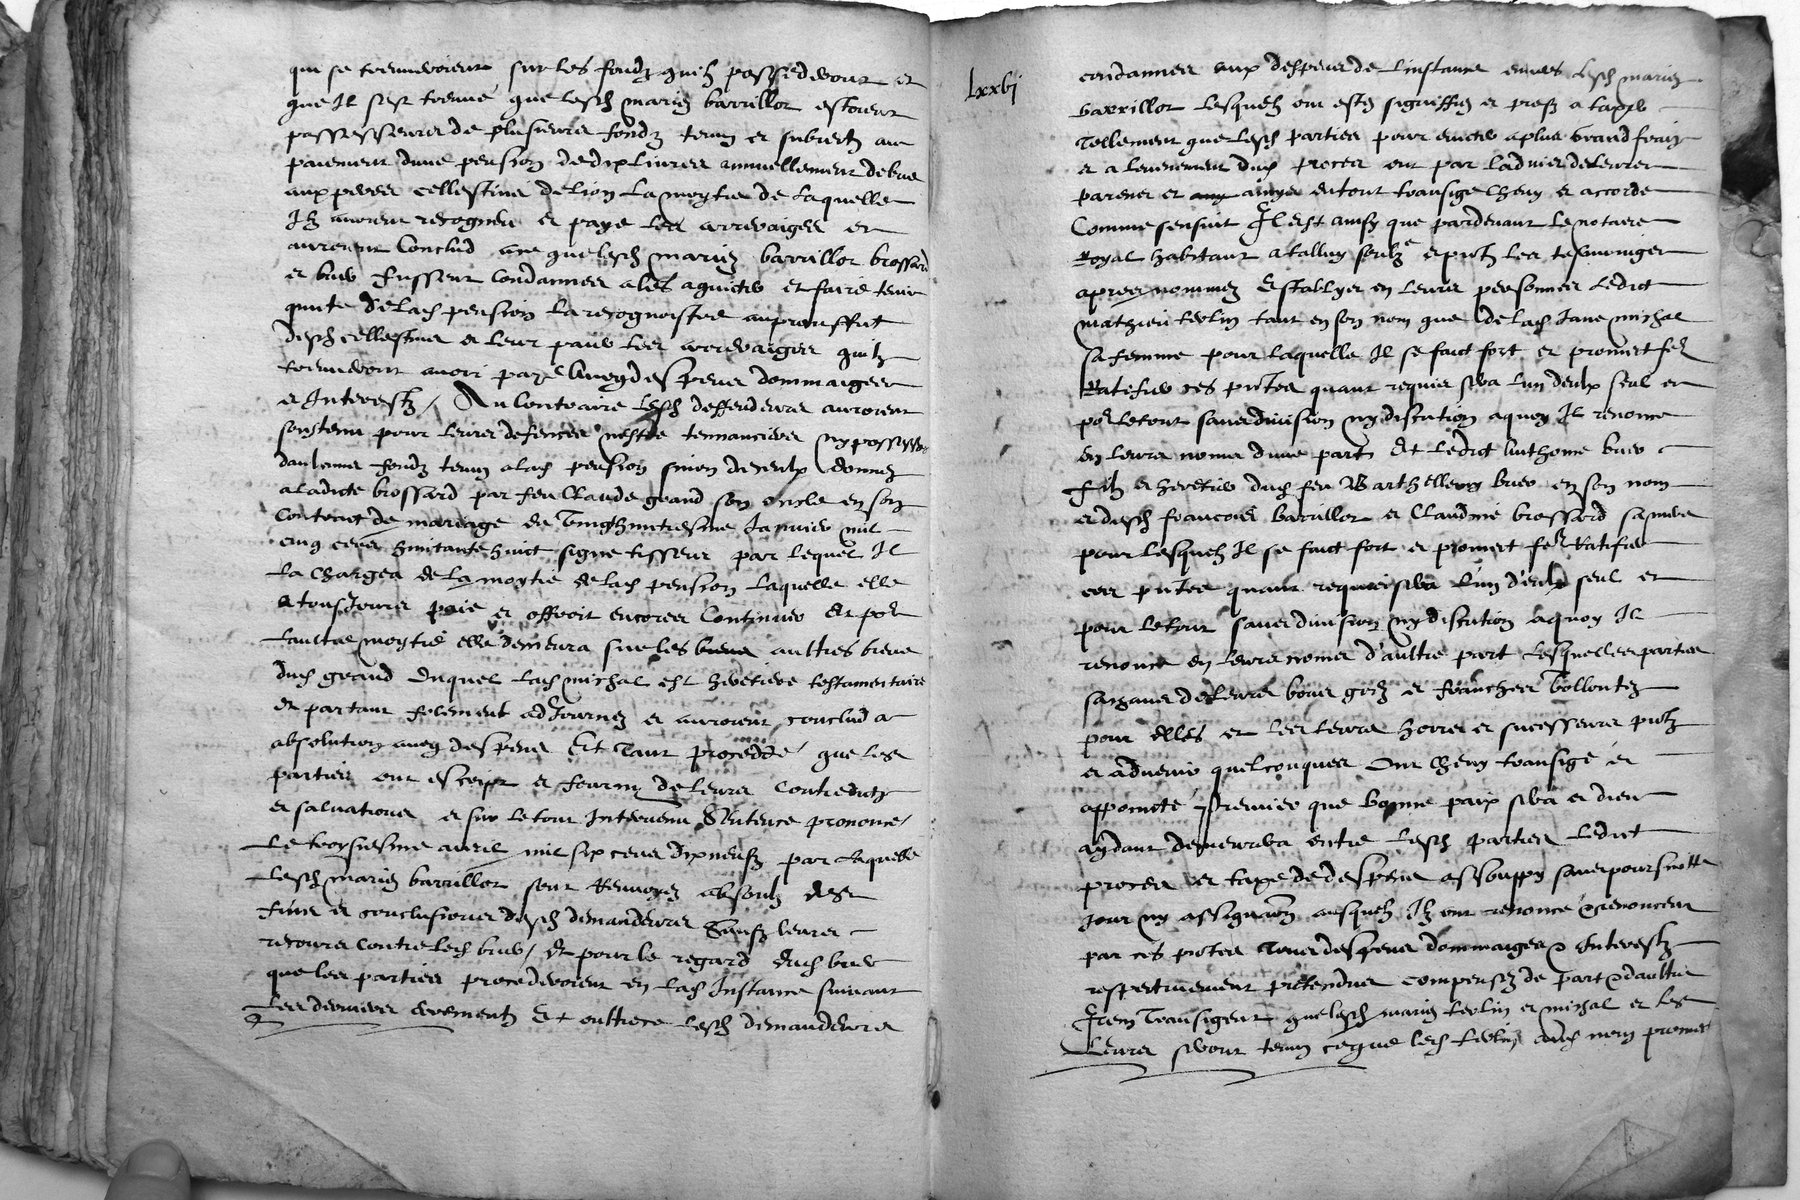 qui se treuveroient sur les fondz quilz possedront et
que Il sest treuvé que lesd mariez barrillot estoient
possesseurs de plusieurs fondz tenuz et subiectz au
paiement dune pension de dix livres annuellement debue
aux peres cellestins de Lion La moytie de Laquelle
Ilz avoient recogneu et paye Les arreraiges et
auroient Conclud que lesd mariez barrillot brossard
et buer fussent Condamnes a les aquicter et faire tenir
quite de lad pension La recognoistre au prouffit
desd cellestins et Leur paier Les arreraiges quilz
treuveront avoir paye avecq despens dommaiges
et Interestz / Au Contraire Lesd deffendeurs auroient
soustenu pour Leurs defences nestre tennanciers ny possesseurs
daulcuns fondz tenuz a lad pension sinon de ceulx donnez
a ladicte brossard par feu Claude grand son oncle en son
Contract de mariage du vingthuictiesme Janvier mil
cinq cens huitante huict signe tisseur par lequel Il
La chargea de La moytie de lad pension Laquelle elle
a tousjours paie et offroit encores Continuer Et por
Laultre moytié elle demeura sur les biens aultres biens
dud grand duquel lad michal est heritiere testamentaire
Et partant folement adJournez et auroient conclud a
absolution avecq despens Et tant procedde que les
parties ont escript et fourny de Leurs Contredictz
et salvations et sur le tout Intervenu Sentence prononce
Le troysiesme avril mil six cens dix neufz par Laquelle
Lesd mariez barrillot sont Renvoyez absoulz des
fins et conclusions desd demandeurs Saufz Leurs
recours contre led buer / Et pour le regard dud buer
que les parties procederoient en lad Instance suivant
Les derniers errementz Et oultre ce Lesd demandeurs
Lxxvij
condamnes aux despens de Linstance envers Lesd mariez
barrillot Lesquelz ont estes signiffiez et prestz a taxer
Tellement que Lesd parties pour eviter a plus grand fraiz
et a Levenement dud proces ont par Ladvis de Leurs
parens et amys entour transige Cheuy et accorde
Comme sensuit Il est ainsy que pardevant Le notaire
Royal habitant a talluy soubze et pntz Les tesmoinges
apres nommez Establyes en Leurs personnes Ledict
mathieu terlin tant en son nom que de lad Jane michal
sa femme pour Laquelle Il se faict fort et promect fer
Ratefier ces pntes quant requis sera Lun deulx seul et
por Le tout sans division ny discution a quoy Il renonce
en Leurs noms dune part Et Ledict Anthoine buer
filz et heretier dud feu Barthellemy buer en son nom
et desd francois barrillot et Claudine brossard sa mere
pour Lesquelz Il se faict fort et promect fer Ratifier
ces pntes quant requis sera Lun deulx seul et
pour Le tout sans division ny discution a quoy Il
renonce en Leurs noms d'aultre part Lesquelles parties
sachans de Leurs bons grez et franches vollontez
pour elles et Les Leurs hoires et sucesseurs pntz
et advenir quelconques Ont Cheuy transigé et
appoincté / Premier que bonne paix sera et dieu
aydant demeurera entre Lesd parties Ledict
proces et taxe de despens assouppy sans poursuitte
Jour ny assignaon ausquelz Ilz ont renonce & renoncent
par ces pntes Tous despens dommaiges & Interestz
respectivement pretendus compensez de part & daultre
Item Transigent que lesd mariez terlin et michal et Les
Leurs seront tenuz ce que led terlin aud nom promect